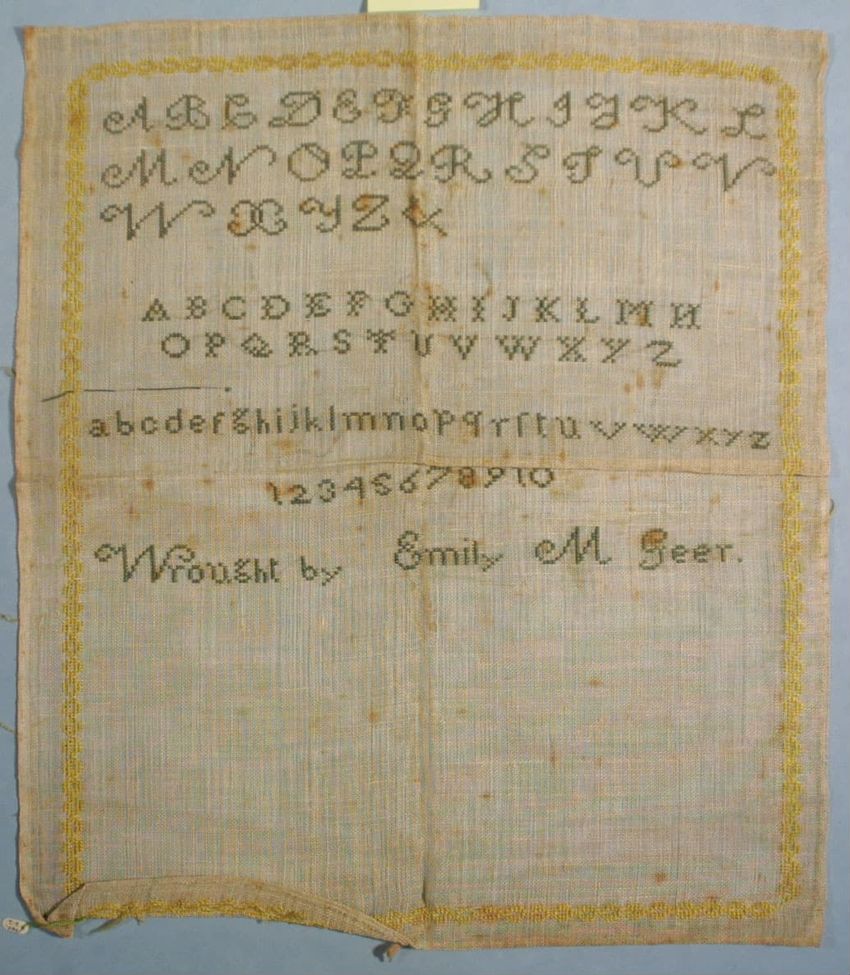 A B C D E F G H I J K L
M N O P Q R S T U V
W X Y Z &
A B C D E F G H I J K L M N
O P Q R S T U V W X Y Z
a b c d e f g h i j k l m n o p q r ſ t u v w x y z
1 2 3 4 5 6 7 8 9 10
Wrought by Emily M Geer.